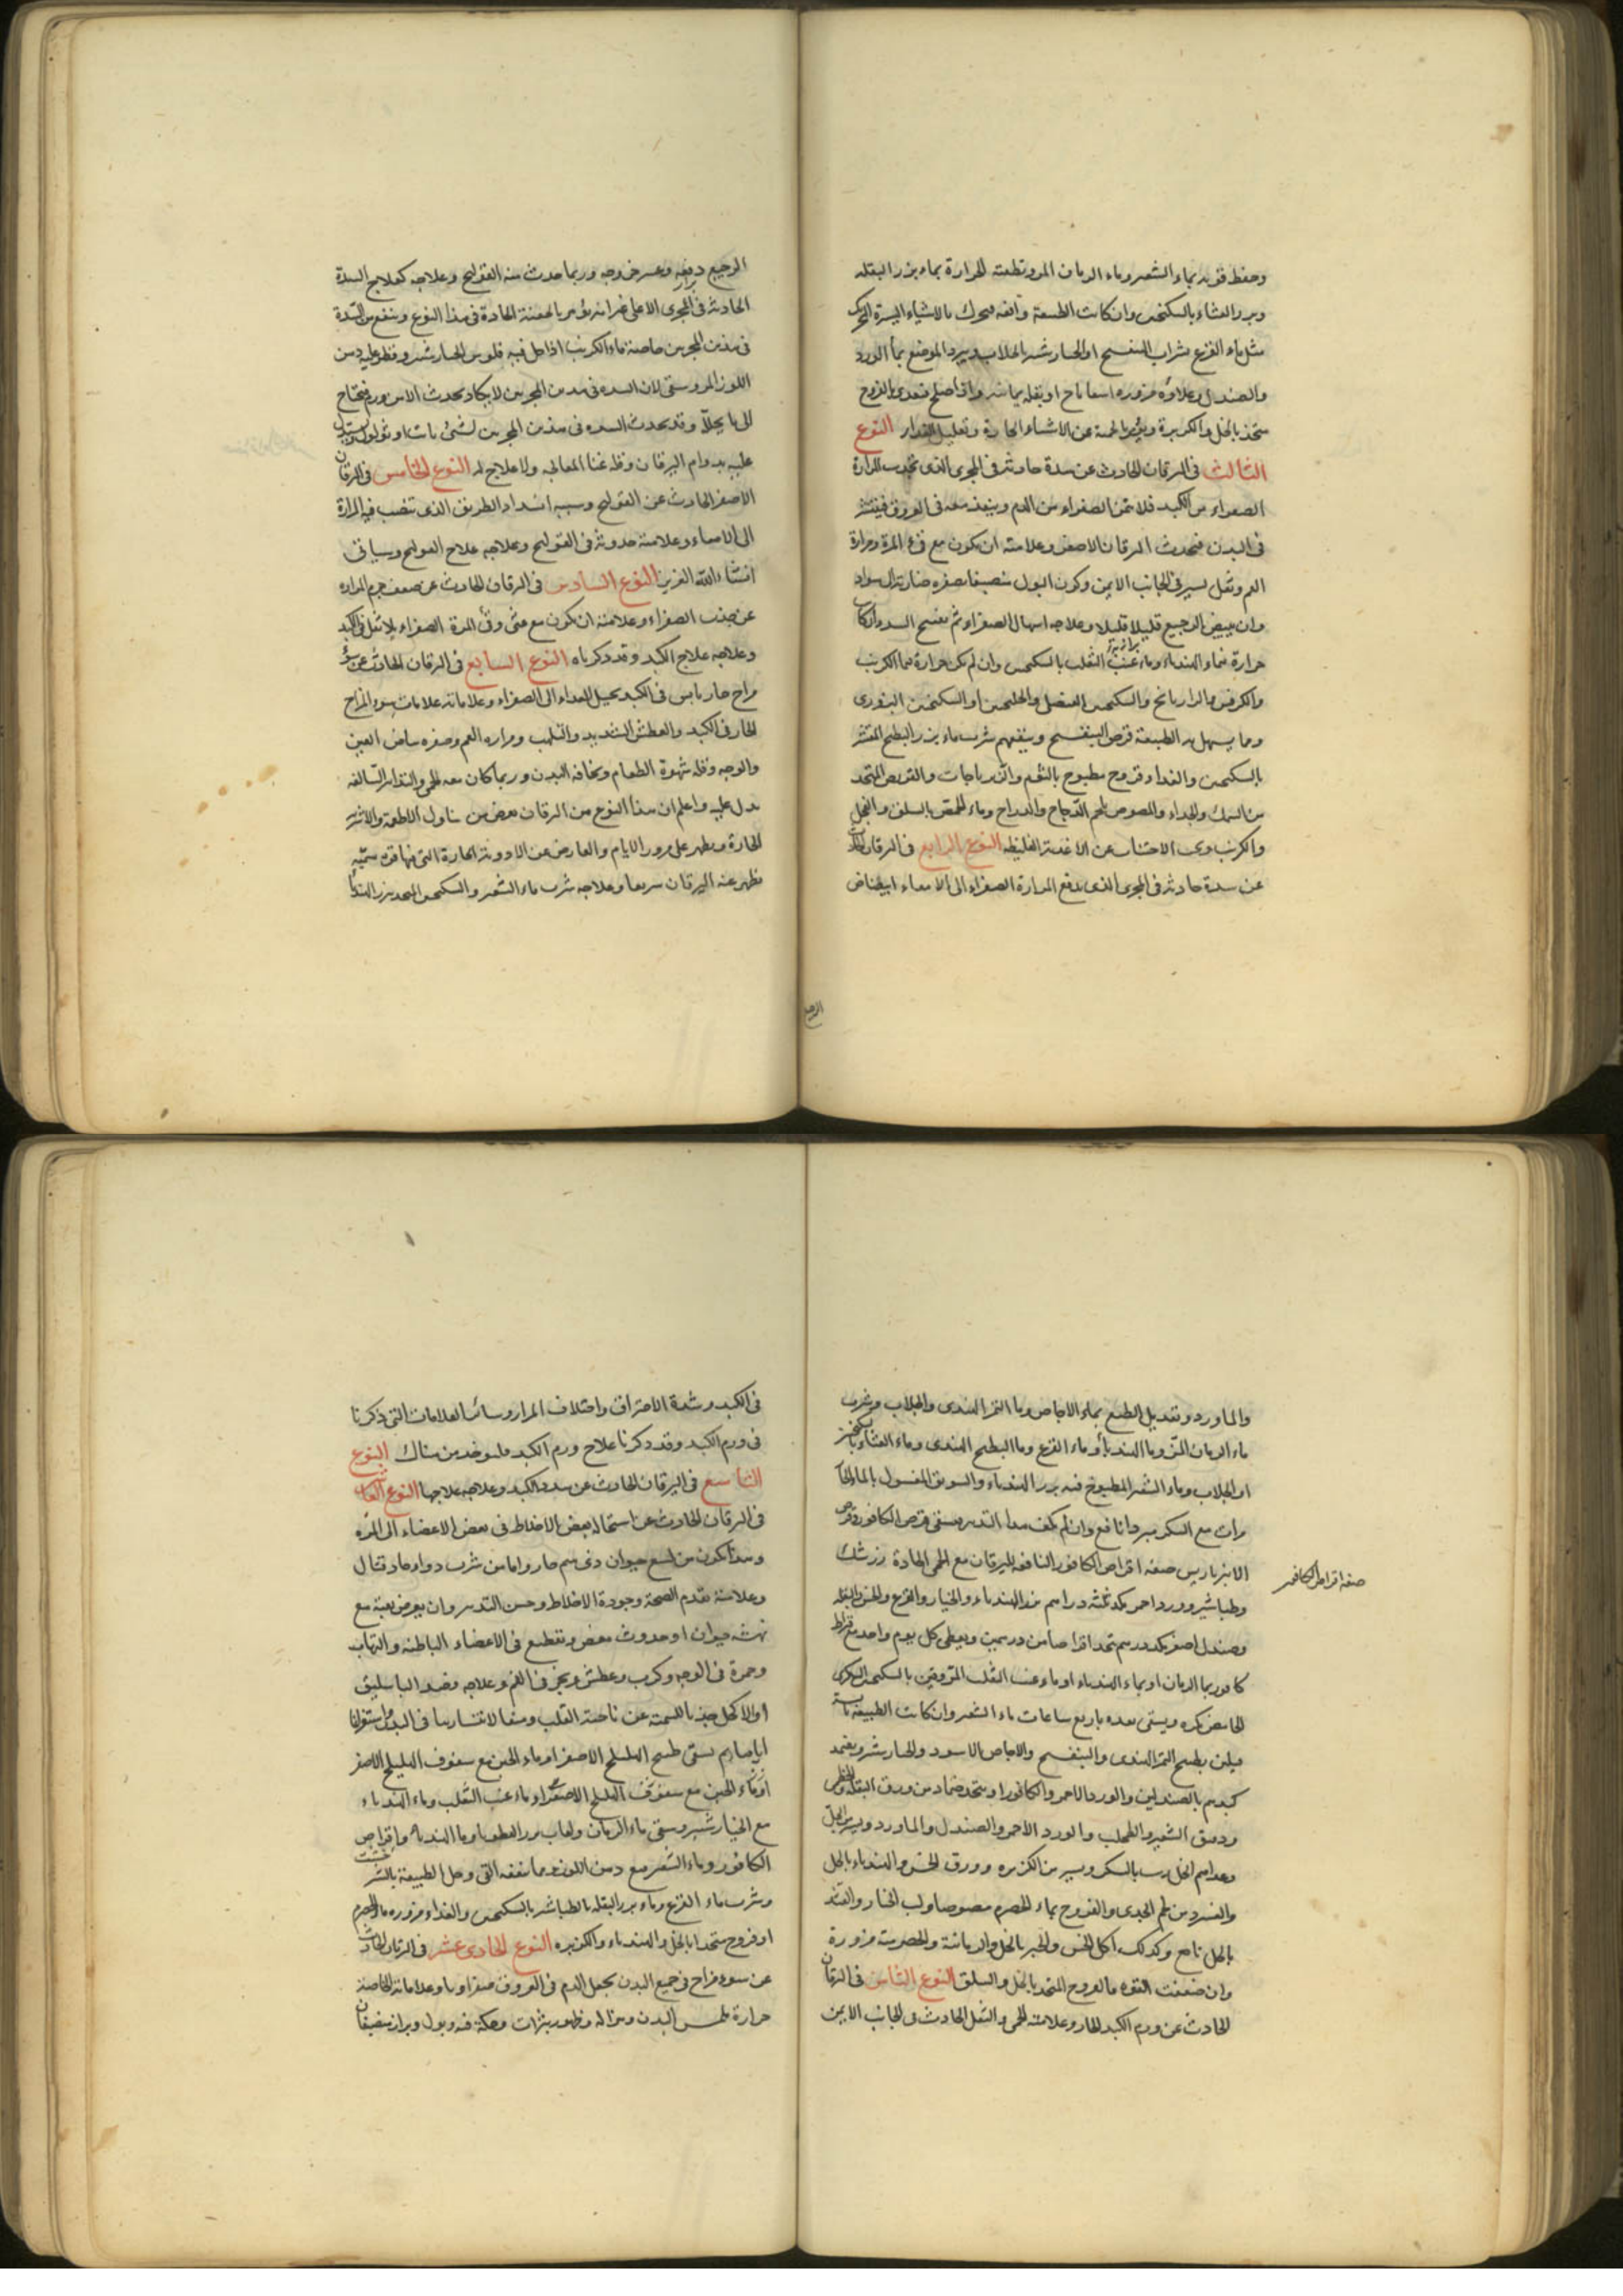 وحفظ قوته بماء الشعير وماء الرمان المز وتطفئة الحرارة بماء بزر البقلة
وبزر القثاء بالسكنجبين وان كانت الطبيعة واقفة فتحرك بالاشياء اليسيرة
مثل ماء القرع بشراب البنفسج او الخيارشنبر بالجلاب ويبرد الموضع بماء الورد
والصندل وغذاؤه مزورة اسفاناخ او بقلة يمانية واذا صلح فتغذى بالفروج
متخذ بالخل والكزبرة ويؤمر بالحمية عن الاشياء الحارة وتقليل المقدار النوع
الثالث فى اليرقان الحادث عن سدة حادثة فى المجرى الذى تجذب المرارة
الصفراء من الكبد فلا تميز الصفراء من الدم وينفذ معه فى العروق فينتشر
فى البدن فيحدث اليرقان الاصفر وعلامته ان يكون مع قىء المرة ومرارة
الفم وثقل يسير فى الجانب الايمن وكون البول منصبغا بصفرة
وان يبيض الرجيع قليلا قليلا وعلاجه اسهال الصفراء ثم تفتيح السدد فان كان
حرارة فماء الهندباء وماء عنب الثعلب بالسكنجبين وان لم يكن حرارة فماء الكرنب
والكرفس والرازيانج والسكنجبين العنصلى والخلنجبين او السكنجبين البزورى
ومما يسهل به الطبيعة قرص البنفسج وينفعهم شرب ماء بزر البطيخ المقشر
بالسكنجبين والغذاء فروج مطبوخ بالثوم والزرباجات والقريص المتخذ
من السمك والجداء والمصوص بلحم الدجاج والدراج وماء الحمص بالسلق والفجل
والكرنب ويجب الاجتناب عن الاغذية الغليظة النوع الرابع فى اليرقان الحادث
عن سدة حادثة فى المجرى الذى يدفع المرارة الصفراء الى الامعاء ابيضاض
الرجيع
الرجيع دفعة وعسر خروجه وربما حدث منه القولنج وعلاجه كعلاج السدة
الحادثة فى المجرى الاعلى غير انه يؤمر بالحقنة الحادة فى هذا النوع وينفع من السدة
فى هذين المجريين خاصة ماء الكرنب اذا حل فيه فلوس الخيارشنبر وقطر عليه دهن
اللوز المر وسقى لان السدة فى هذين المجريين لا يكاد يحدث الا من ورم فيحتاج
الى ما يحلل وقد يحدث السدة فى هذين المجريين لشىء نابت او ثؤلول ويستدل
عليه بدوام اليرقان وقلة غناء المعالجة ولا علاج له النوع الخامس فى اليرقان
الاصفر الحادث عن القولنج وسببه انسداد الطريق الذى تنصب فيه المرارة
الى الامعاء وعلامته حدوثه فى القولنج وعلاجه علاج القولنج وسيأتى
انشاء الله العزيز النوع السادس فى اليرقان الحادث عن ضعف جرم المرارة
عن جذب الصفراء وعلامته ان يكون مع غثى وقىء المرة الصفراء بلا ثقل فى الكبد
وعلاجه علاج الكبد وقد ذكرناه النوع السابع فى اليرقان الحادث عن سوء
مزاج حار يابس فى الكبد يحيل الغذاء الى الصفراء وعلاماته علامات سوء المزاج
الحار فى الكبد والعطش الشديد والتلهب ومرارة الفم وصفرة بياض العين
والوجه وقلة شهوة الطعام ونحافة البدن وربما كان معه الحمى والتدابير السالفة
تدل عليه واعلم ان هذا النوع من اليرقان يعرض من تناول الاطعمة والاشربة
الحارة ويظهر على مرور الايام والعارض من الادوية الحارة التى فيها قوة سمية
يظهر عنه اليرقان سريعا وعلاجه شرب ماء الشعير والسكنجبين المتخذ ببزر الهندبا
والماورد وتعديل الطبع بماء الاجاص وماء التمر الهندى والجلاب وشرب
ماء الرمان المز وماء الهندبا وماء القرع وماء البطيخ الهندى وماء القثاء بالسكنجبين
او الجلاب وماء الشعير المطبوخ فيه بزر الهندباء والسويق المغسول بالماء الحار
مرات مع السكر مبردا نافع وان لم يكف هذا التدبير يسقى قرص الكافور وقرص
الانبرباريس صفة اقراص الكافور النافعة لليرقان مع الحمى الحادة زرشك
صفة اقراص الكافور
وطباشير وورد احمر يكد ثلثة دراهم بزر الهندباء والخيار والقرع والخس والبقلة
وصندل اصفر يكد درهم تتخذ اقراصا من درهمين ويعطى كل يوم واحد مع قيراط
كافور بماء الرمان او بماء الهندباء او ماء عنب الثعلب المروقين بالسكنجبين السكرى
الحامض بكرة ويسقى بعده باربع ساعات ماء الشعير وان كانت الطبيعة يابسة
فيلين بطبيخ التمر الهندى والبنفسج والاجاص الاسود والخيارشنبر ويضمد
كبدهم بالصندلين والورد الاحمر والكافور او يتخذ ضماد من ورق البقلة
ودقيق الشعير والطحلب والورد الاحمر والصندل والماورد
وغذاهم الخل زيت بالسكر ويسير من الكزبرة وورق الخس والهندباء بالخل
والقريص من لحم الجدى والفروج بماء الحصرم مصوصا ولب الخيار والقثد
بالخل نافع وكذلك اكل الخس والخبز بالخل والرمانية والحصرمية مزورة
وان ضعفت القوة فالفروج المتخذ بالخل والسلق النوع الثامن فى اليرقان
الحادث عن ورم الكبد الحار وعلامته الحمى والثقل الحادث فى الجانب الايمن
فى الكبد وشدة الاحتراق واختلاف المرار وسائر العلامات التى ذكرنا
فى ورم الكبد وقد ذكرنا علاج ورم الكبد فليوخذ من هناك النوع
التاسع فى اليرقان الحادث عن سدد الكبد وعلاجه علاجها النوع العاشر
فى اليرقان الحادث عن استحالة بعض الاخلاط فى بعض الاعضاء الى المرة
وهذا يكون من لسع حيوان ذى سم حار واما من شرب دواء حاد قتال
وعلامته تقدم الصحة وجودة الاخلاط وحسن التدبير وان يعرض بغتة مع
نهشة حيوان او حدوث مغص وتقطيع فى الاعضاء الباطنة والتهاب
وحمرة فى الوجه وكرب وعطش وبخر فى الفم وعلاجه فصد الباسليق
او الاكحل جذبا للسمية عن ناحية القلب ومنعا لانتشارها فى البدن واستفراغا
اياها ثم يسقى طبيخ الهليلج الاصفر او ماء الجبن مع سفوف الهليلج الاصفر
او ماء الجبن مع سفوف الهليلج الاصفر او ماء عنب الثعلب وماء الهندباء
مع الخيارشنبر وسقى ماء الرمان ولعاب بزر القطونا وماء الهندباء واقراص
الكافور وماء الشعير مع دهن اللوز ومما ينفعه القىء وحل الطبيعة بالشيرخشت
وشرب ماء القرع وماء بزر البقلة بالطباشير بالسكنجبين والغذاء مزورة ماء الحصرم
او فروج متخذا بالخل والهندباء والكزبرة النوع الحادى عشر فى اليرقان الحادث
عن سوء مزاج فى جميع البدن يجعل الدم فى العروق صفراويا وعلاماته الخاصة
حرارة ملمس البدن وهزاله وظهور بثرات وحكة فيه وبول وبراز منصبغان